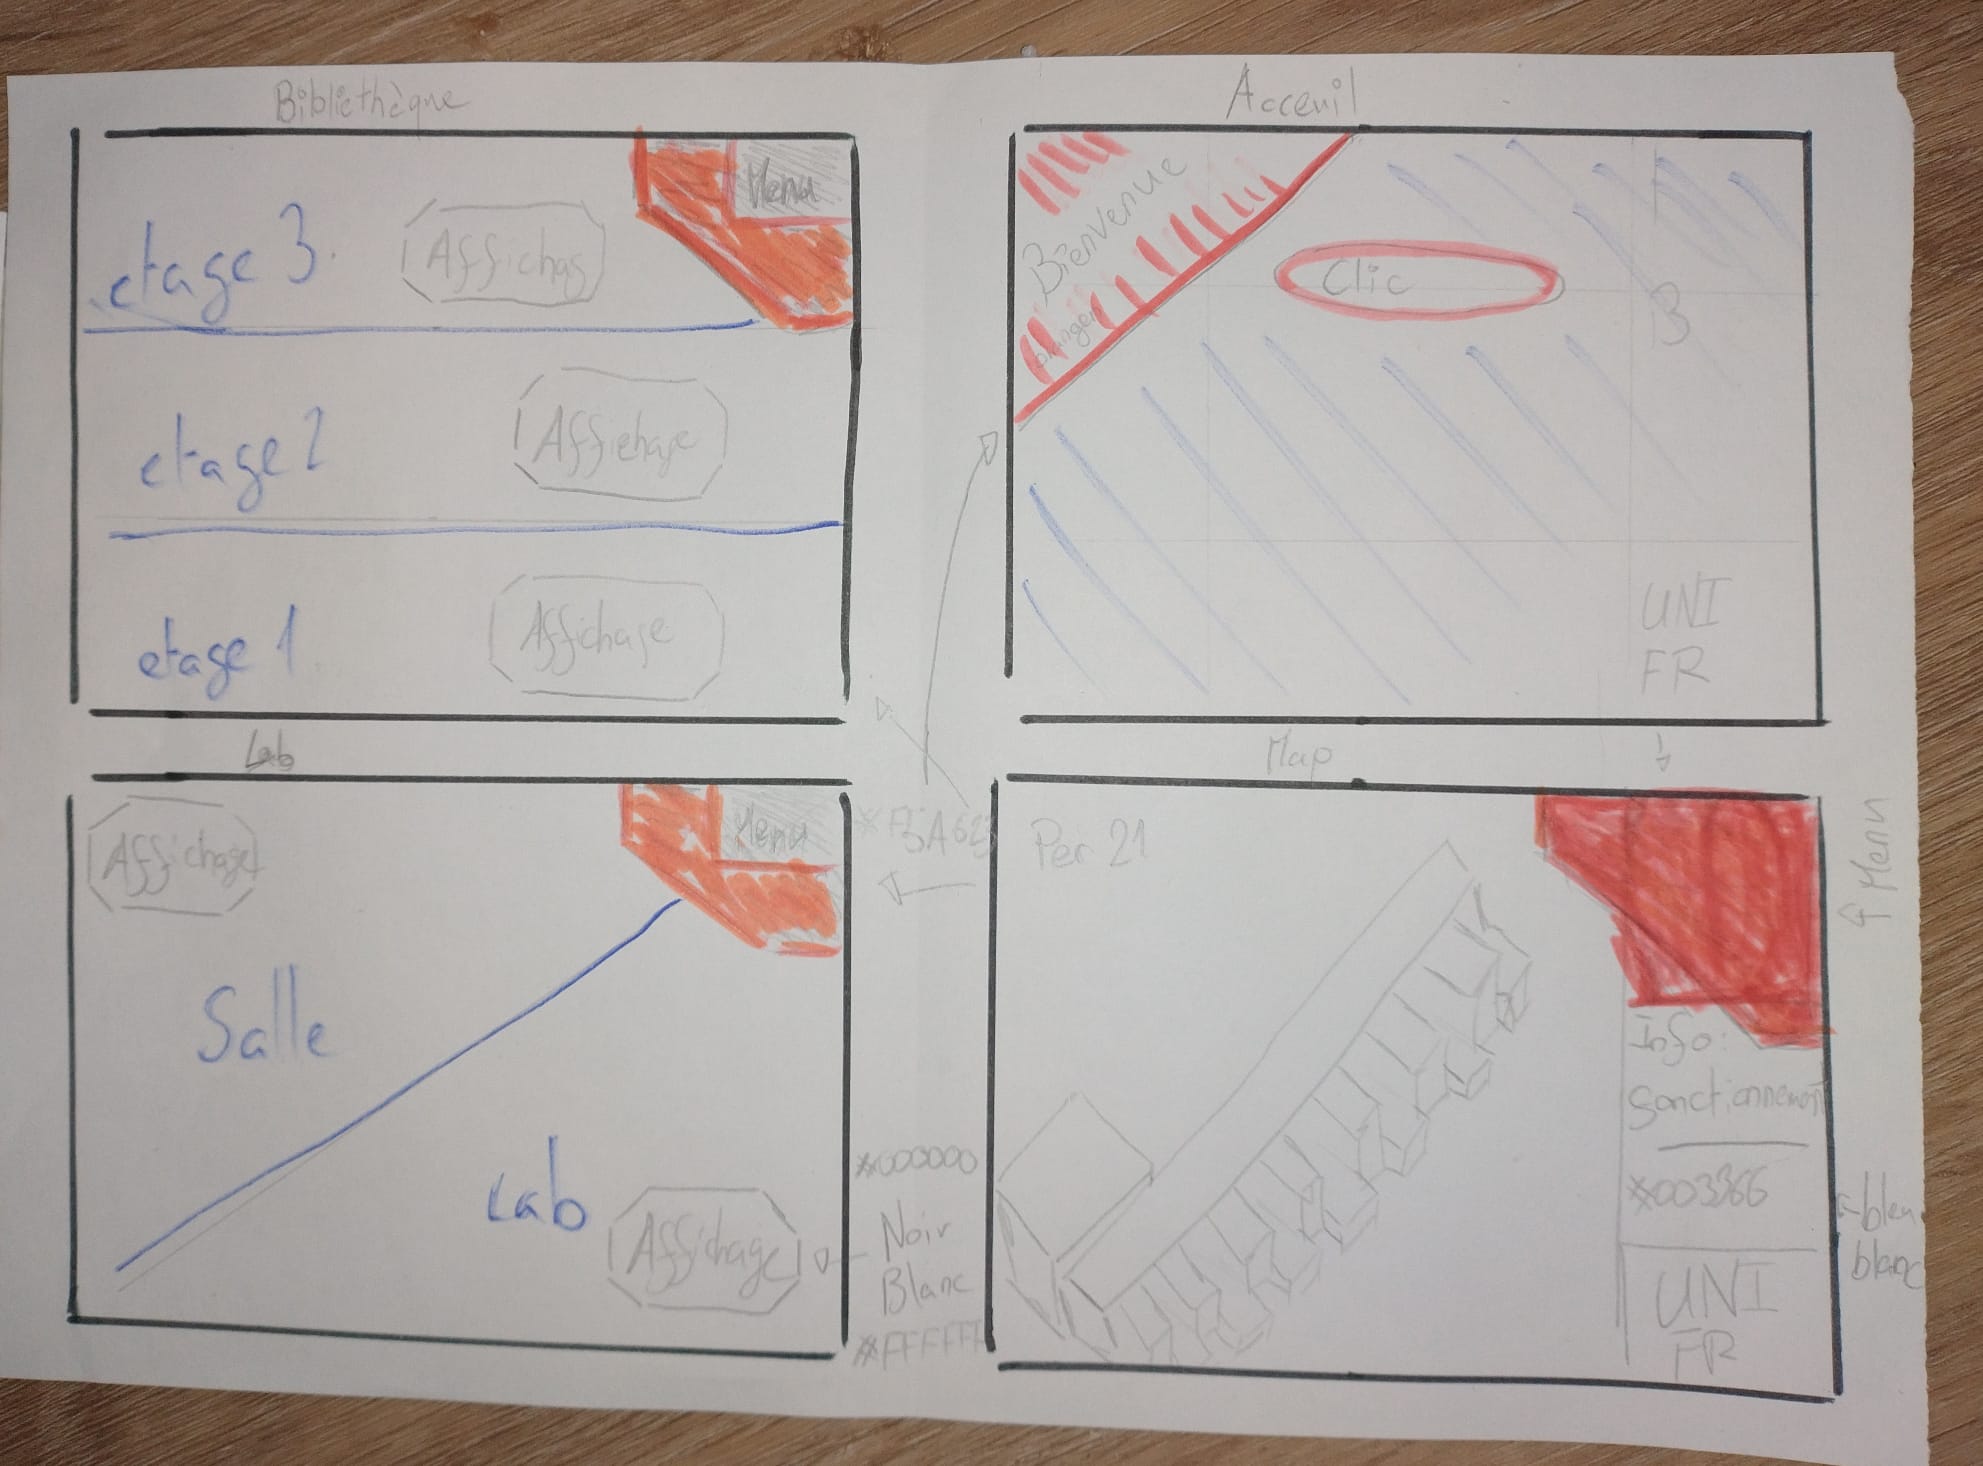 Bibliothèque
Menu
etage 3
Affichag
etage 2
Affichage
etage 1
Affichage
Acceuil
Bienvenue
Clic
B
UNI
FR
Lab
Affichage
Menu
Salle
Lab
Affichage
#000000
Noir
Blanc
#FFFFFF
Map
Per 21
Menu
Info:
fonctionnement
#003366
bleu
blanc
UNI
FR